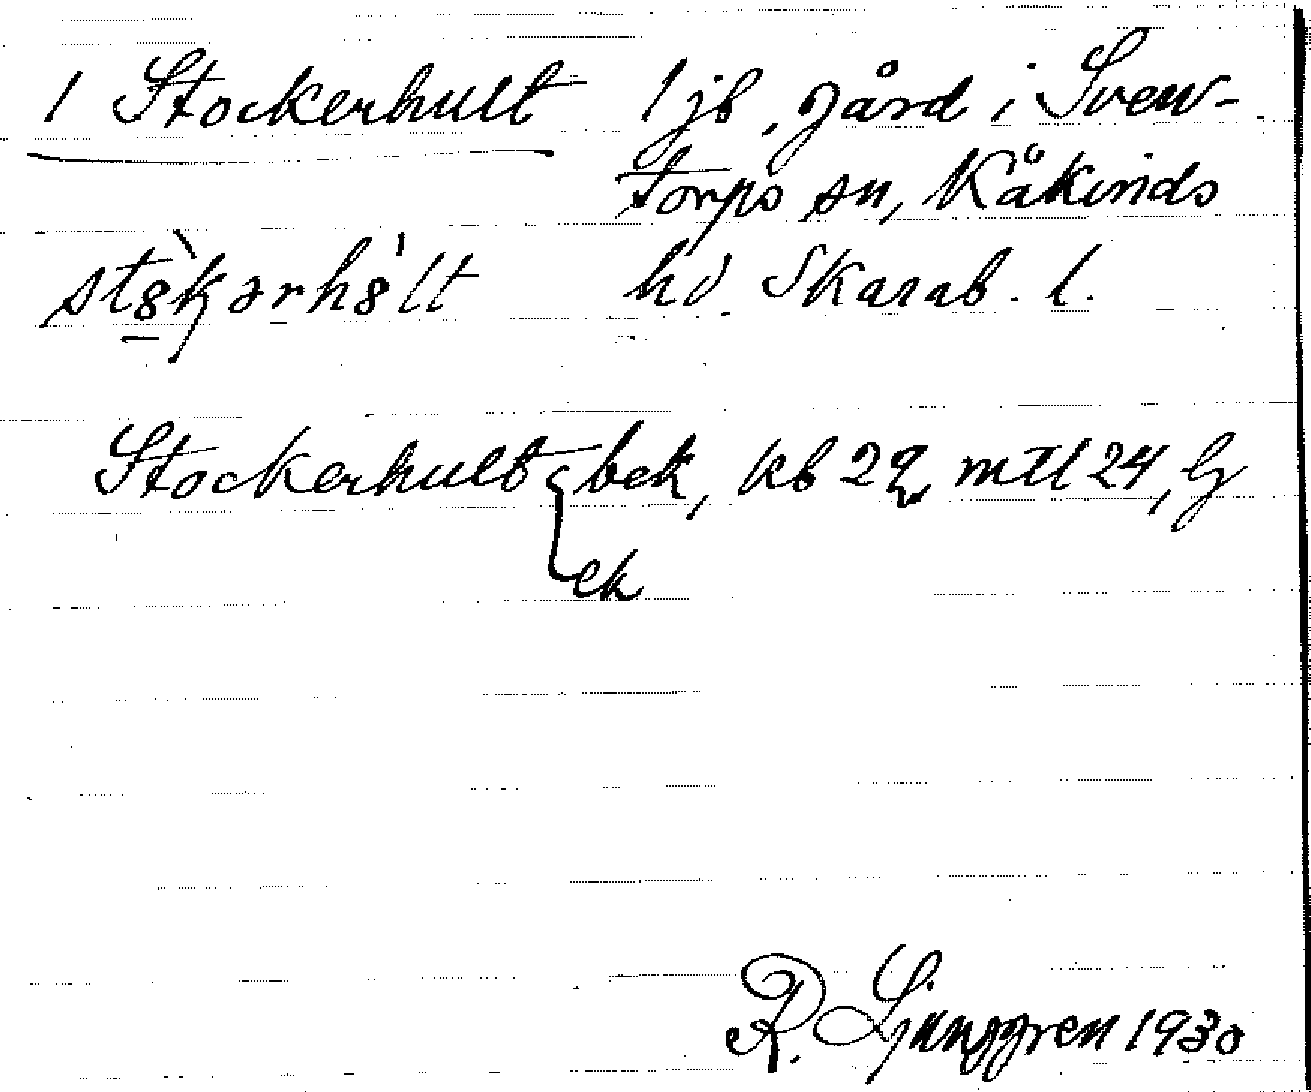 1 Stockerhult 1 jb, gård i Sven-
torps sn, Kåkinds
hd. Skarab. l.
Stockerhult { bek, kb 22, mtl 24, G
ek
R. Ljunggren 1930